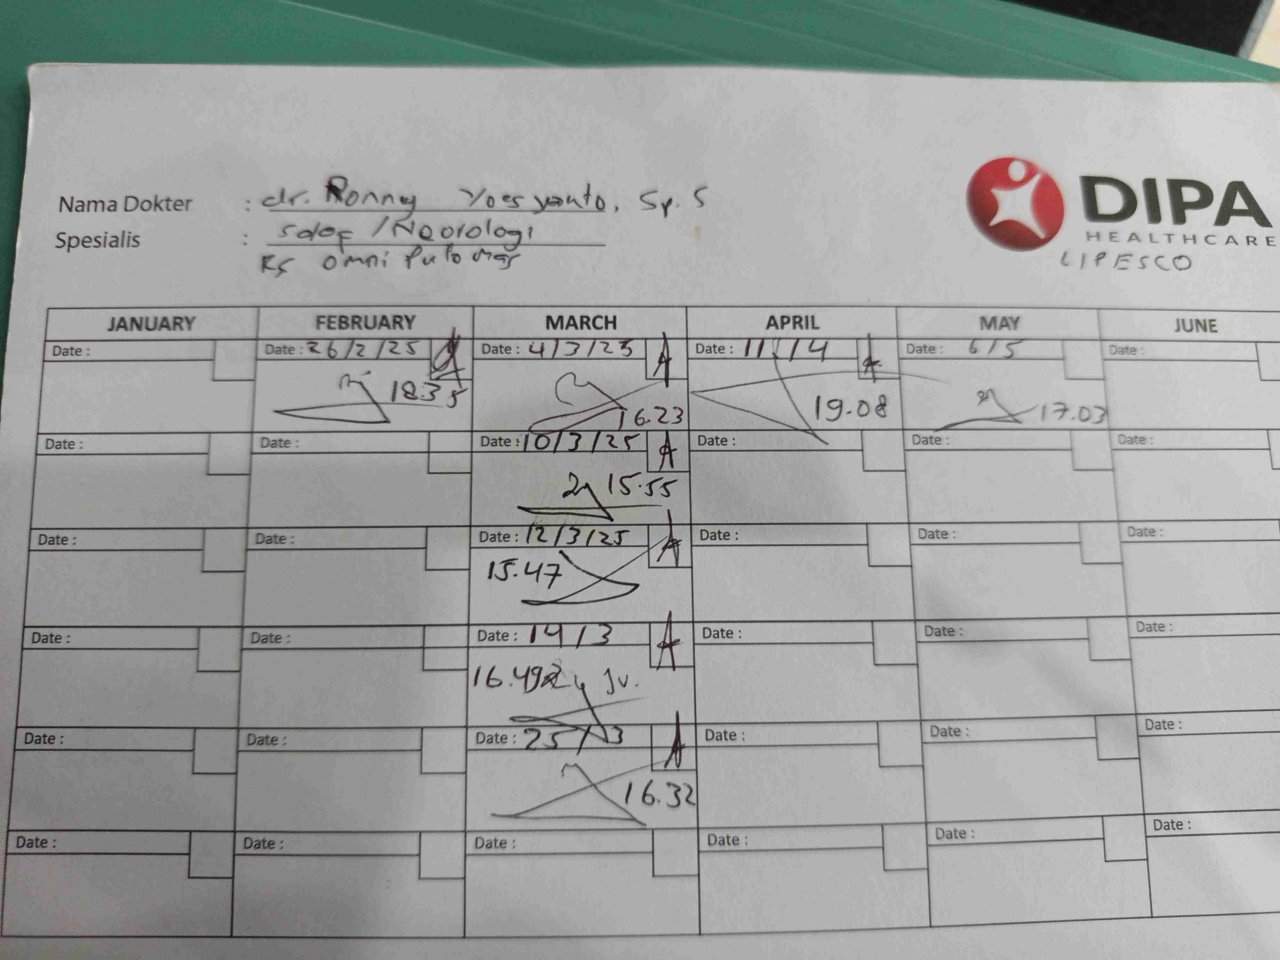 Nama Dokter : dr. Ronny Yoesyanto, Sp. S
Spesialis : Saraf / Neorologi
RS Omni Pulomas
DIPA
HEALTHCARE
LIPESCO
JANUARY FEBRUARY MARCH APRIL MAY JUNE
Date : Date : 26/2/25 Date : 4/3/25 Date : 11/4 Date : 6/5 Date :
18.35 16.23 19.08 17.03
Date : Date : Date : 10/3/25 Date : Date : Date :
15.55
Date : Date : Date : 12/3/25 Date : Date : Date :
15.47
Date : Date : Date : 14/3 Date : Date : Date :
16.49
Date : Date : Date : 25/3 Date : Date : Date :
16.32
Date : Date : Date : Date : Date : Date :